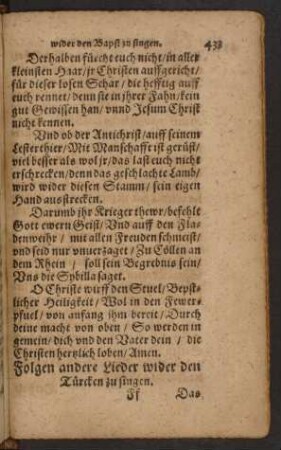 wider den Bapst zu singen. 433
Derhalben fürcht euch nicht/ in aller
kleinsten Haar/ jr Christen auffgericht/
für dieser losen Schar/ die hefftig auff
euch rennet/ denn sie in jhrer Fahn/ kein
gut Gewissen han/ vnnd Jesum Christ
nicht kennen.
Vnd ob der Antichrist/ auff seinem
Lesterthier/ Mit Manschafft ist gerüst/
viel besser als wol jr/ das last euch nicht
erschrecken/ denn das geschlachte Lamb/
wird wider diesen Stamm/ sein eigen
Hand ausstrecken.
Darumb jhr Krieger thewr/ befehlt
Gott ewern Geist/ Vnd auff den Fla-
denweihr/ mit allen Freuden schmeist/
vnd seid nur vnuerzaget/ Zu Cöllen an
dem Rhein/ soll sein Begrebnis sein/
Vns die Sybilla saget.
O Christe wirff den Stuel/ Bepst-
licher Heiligkeit/ Wol in den Fewer-
pfuel/ von anfang jhm bereit/ Durch
deine macht von oben/ So werden in
gemein/ dich vnd den Vater dein/ die
Christen hertzlich loben/ Amen.
Folgen andere Lieder wider den
Türcken zu singen.
Das